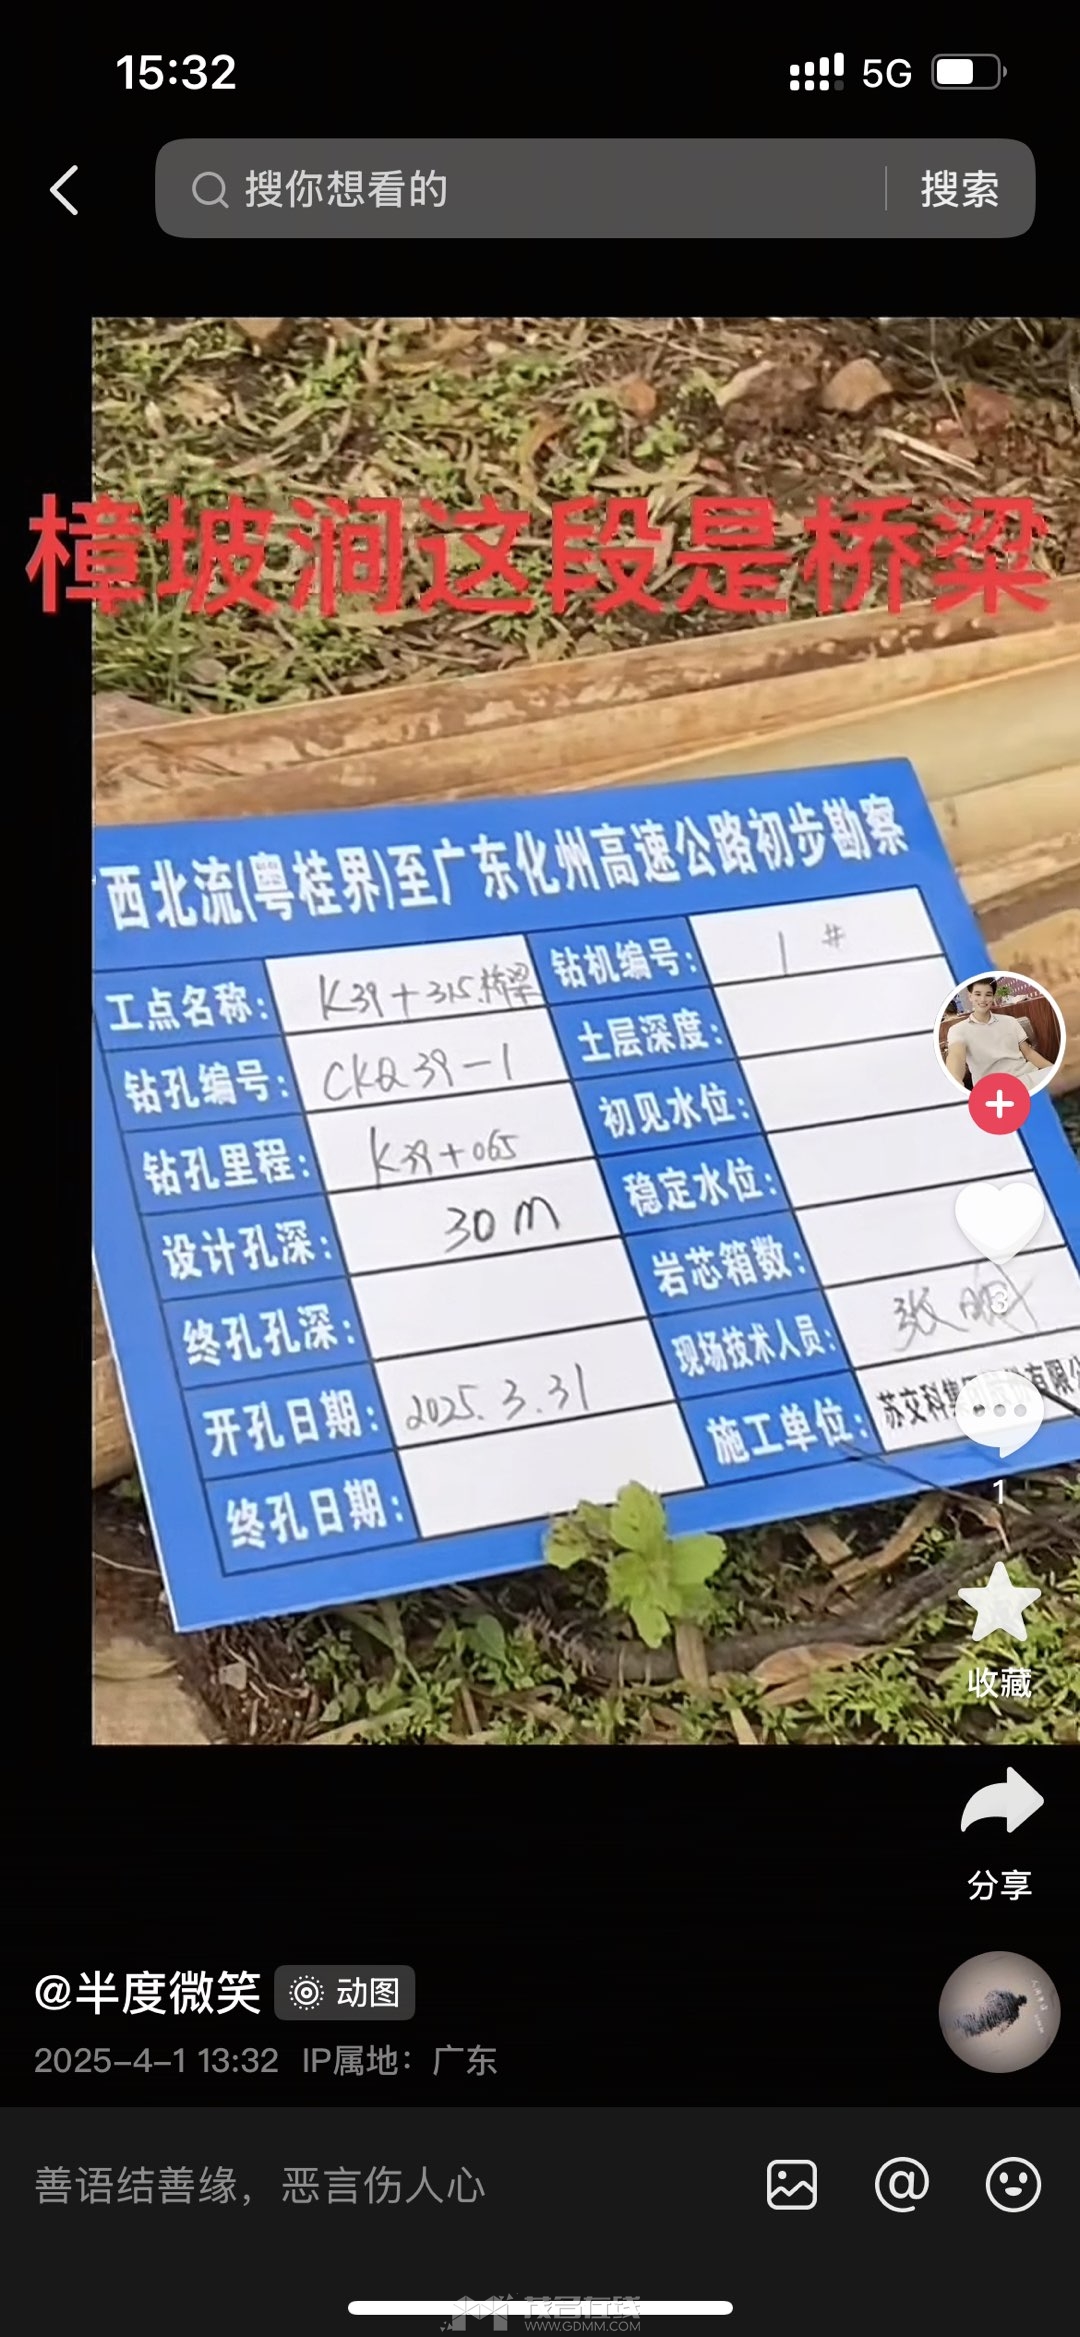 15:32
5G
搜你想看的
搜索
樟坡涧这段是桥梁
西北流(粤桂界)至广东化州高速公路初步勘察
工点名称: K39+315桥梁 钻机编号: 1#
钻孔编号: CKQ39-1 土层深度:
钻孔里程: K39+065 初见水位:
设计孔深: 30m 稳定水位:
终孔孔深: 岩芯箱数:
开孔日期: 2025.3.31 现场技术人员: 张
终孔日期: 施工单位: 苏交科集团股份有限公
3
1
收藏
分享
@半度微笑
动图
2025-4-1 13:32 IP属地: 广东
善语结善缘，恶言伤人心
茂名在线
WWW.GDMM.COM